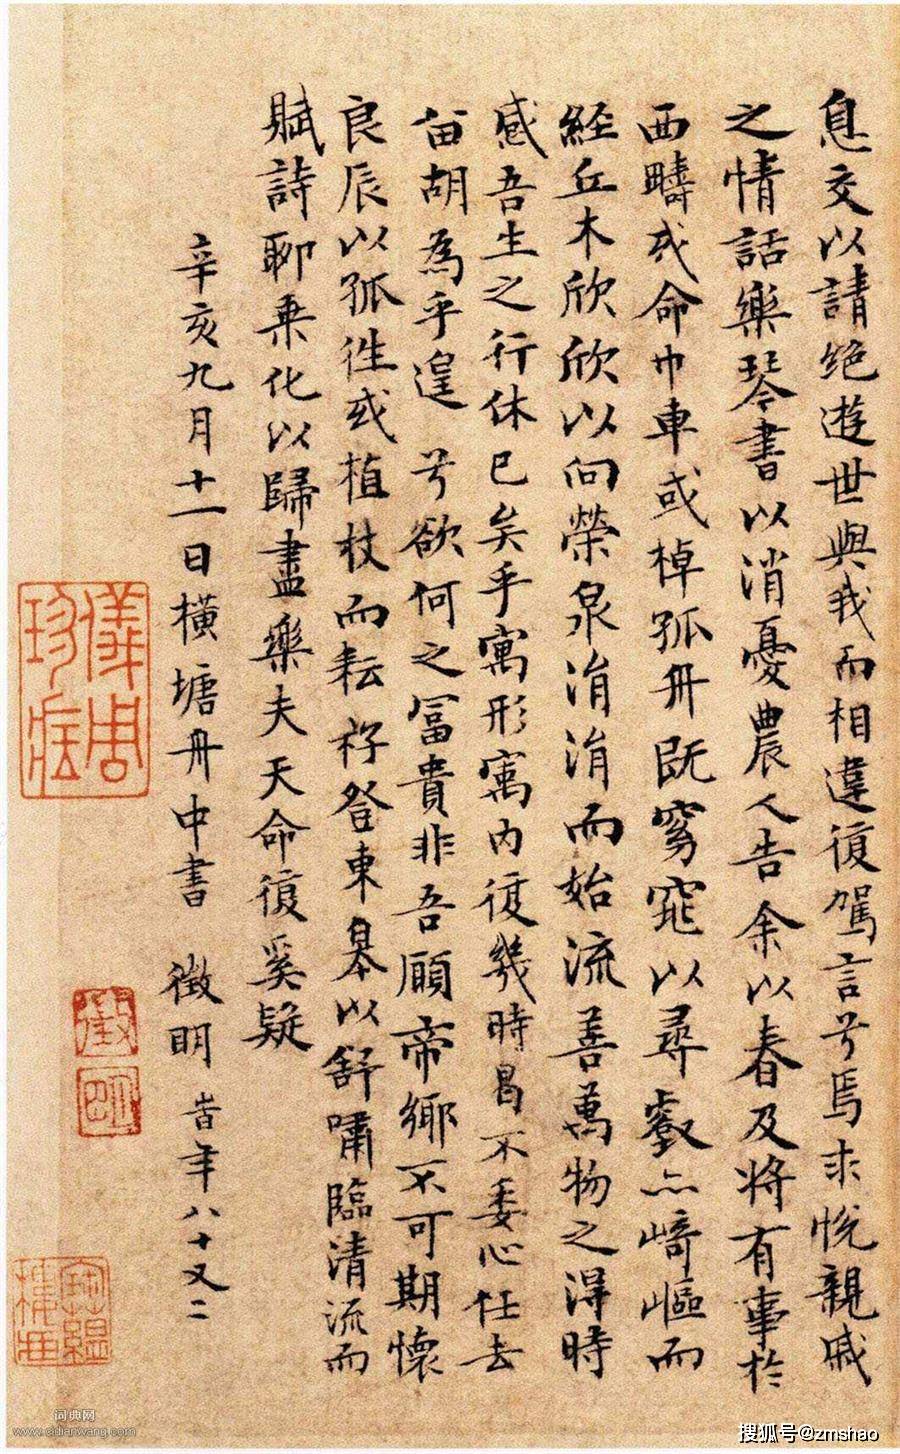 息交以請絕遊世與我而相違復駕言兮焉求悅親戚
之情話樂琴書以消憂農人告余以春及將有事於
西疇或命巾車或棹孤舟既窈窕以尋壑亦崎嶇而
經丘木欣欣以向榮泉涓涓而始流善萬物之得時
感吾生之行休已矣乎寓形寓內復幾時曷不委心任去
留胡為乎遑兮欲何之冨貴非吾願帝鄉不可期懷
良辰以孤往或植杖而耘耔登東皋以舒嘯臨清流而
賦詩聊乘化以歸盡樂夫天命復奚疑
辛亥九月十一日橫塘舟中書 徵明 旹年八十又二
儀周珍藏
徵
明
词典网
www.cidianwang.com
搜狐号@zmshao